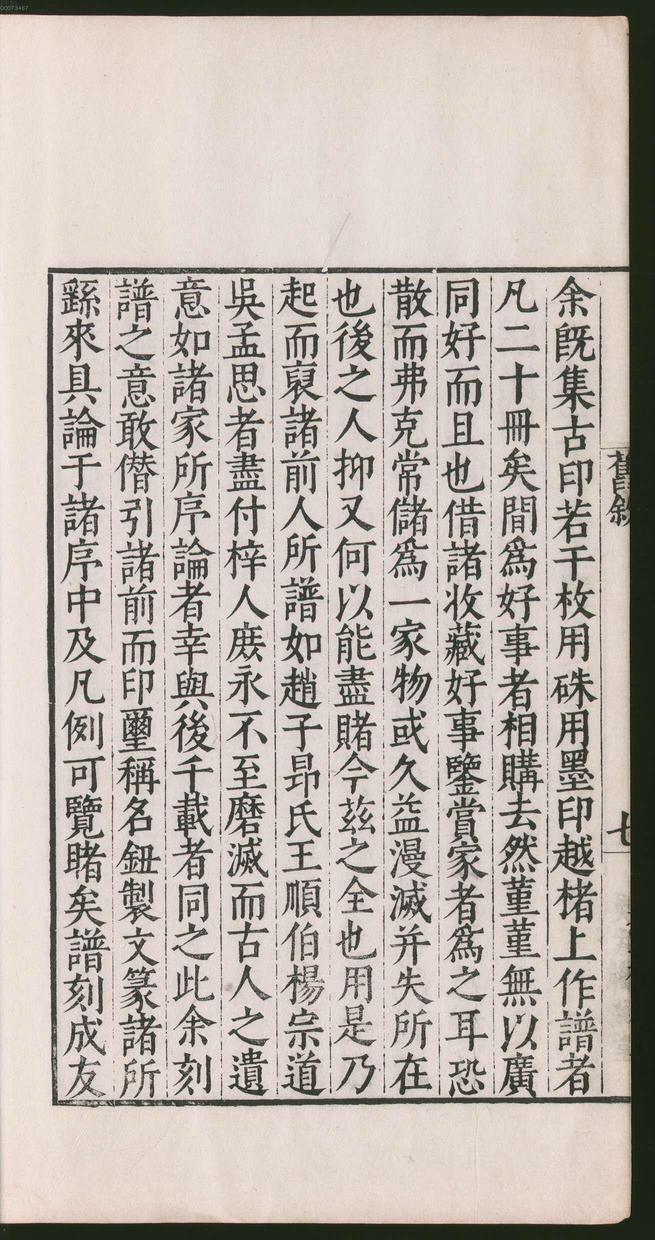 00073467
舊敘
七
余既集古印若干枚用硃用墨印越楮上作譜者
凡二十冊矣間為好事者相購去然菫菫無以廣
同好而且也借諸收藏好事鑒賞家者為之耳恐
散而弗克常儲為一家物或久益漫滅并失所在
也後之人抑又何以能盡賭今茲之全也用是乃
起而裒諸前人所譜如趙子昻氏王順伯楊宗道
吳孟思者盡付梓人庶永不至磨滅而古人之遺
意如諸家所序論者幸與後千載者同之此余刻
譜之意敢僣引諸前而印璽稱名鈕製文篆諸所
繇來具論于諸序中及凡例可覽睹矣譜刻成友